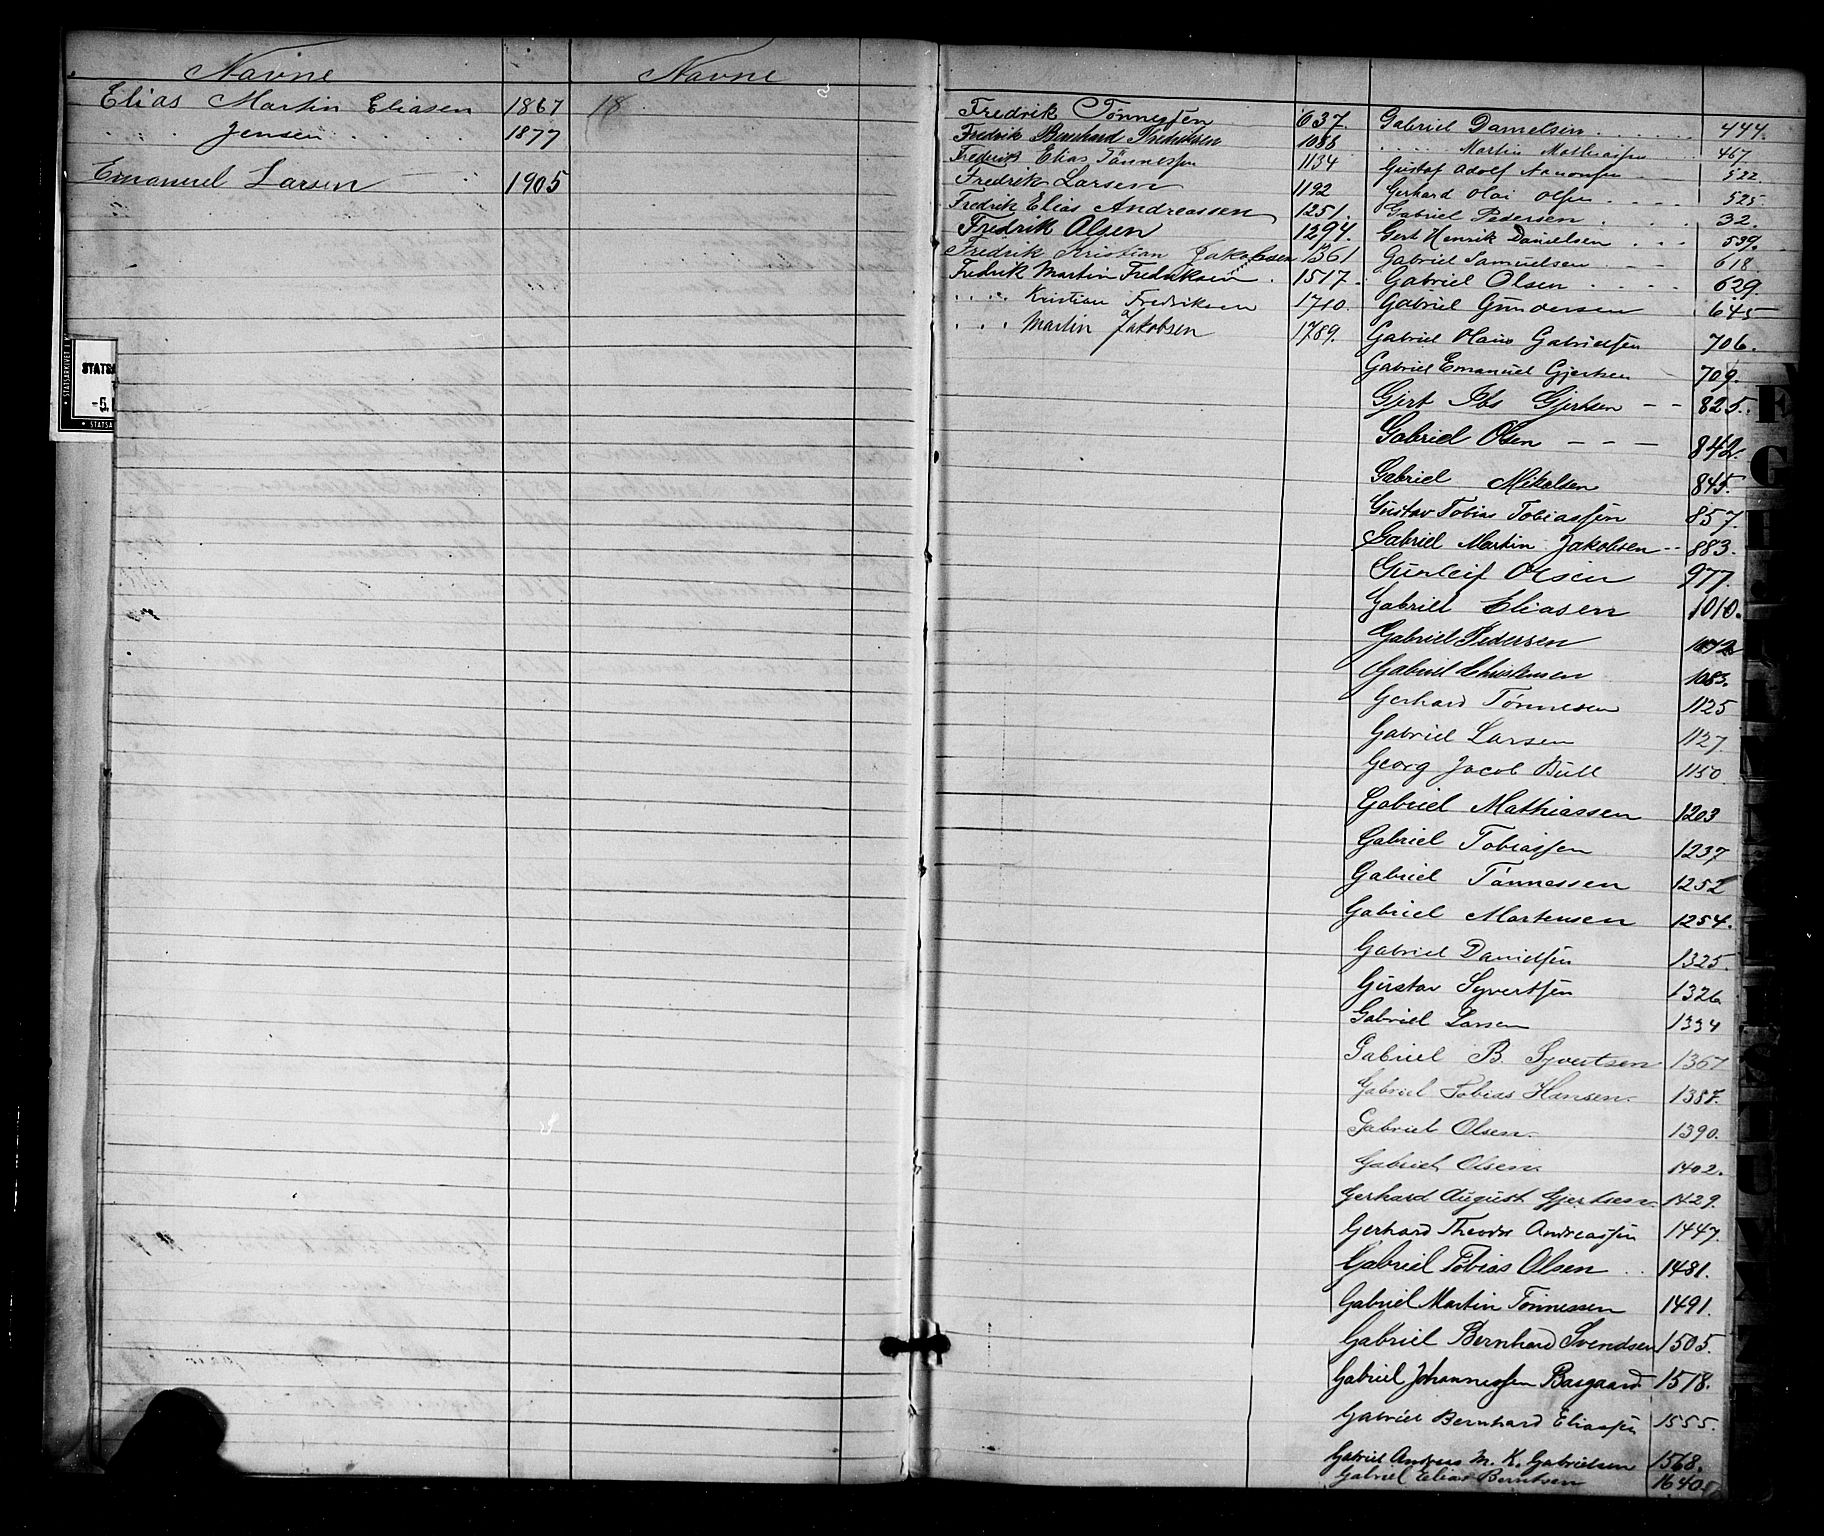 Navne
Elias Martin Eliasen 1867
. . Jensen 1877
Emanuel Larsen 1905
Navne
18
STATSA
-5.
STATSARKIVET I K
STATSA
Fredrik Tönnessen 637.
Fredrik Bernhard Fredriksen 1088
Frederik Elias Tännessen 1134
Fredrik Larsen 1192
Fredrik Elias Andreassen 1251.
Fredrik Olsen 1294.
Fredrik Kristian Jakobsen 1361
Fedrik Martin Fredriksen . 1517.
. . . Kristian Fredriksen 1710.
. . . Martin Jakobsen 1789.
Gabriel Danielsen . . . . . 444.
. . . . . Martin Mathiassen . . 467.
Gustaf Adolf Aanonsen - - 522.
Gerhard Olai Olsen . . . . 525
Gabriel Pedersen . . . . 32.
Gert Henrik Danielsen . . . 539.
Gabriel Samuelsen . - - 618.
Gabriel Olsen . . . . . 629.
Gabriel Gundersen 645
Gabriel Olaus Gabrielsen 706.
Gabriel Emanuel Gjertsen 709.
Gjert Ibs Gjertsen - - 825.
Gabriel Olsen - - - 842.
Gabriel Mikalsen 845.
Gustav Tobias Tobiassen 857.
Gabriel Martin Jakobsen - - 883.
Gunleif Olsen 977.
Gabriel Eliasen 1010.
Gabriel Pedersen 1072
Gabriel Christensen 1083.
Gerhard Tönnesen 1125
Gabriel Larsen 1127
Georg Jacob Bull 1150
Gabriel Mathiassen 1203
Gabriel Tobiassen 1237
Gabriel Tönnessen 1252
Gabriel Mortensen 1254.
Gabriel Danielsen 1325.
Gustav Syvertsen 1326
Gabriel Larsen 1334
Gabriel B. Syvertsen 1367
Gabriel Tobias Hansen. 1387.
Gabriel Olsen. 1390.
Gabriel Olsen. 1402.
Gerhard August Gjertsen. 1429.
Gerhard Theodor Andreassen 1447.
Gabriel Tobias Olsen . . 1481.
Gabriel Martin Tönnessen 1491.
Gabriel Bernhard Svendsen 1505.
Gabriel Johannessen Baagaard 1518.
Gabriel Bernhard Eliassen 1555.
Gabriel Andreas M. K. Gabrielsen 1568.
Gabriel Elias Berntsen 1640.
F
G